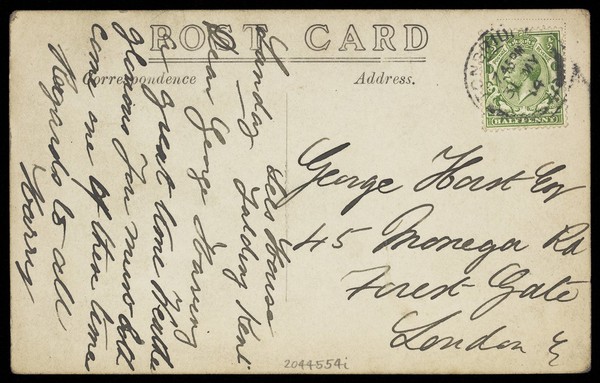 POST CARD
Correspondence
Address.
HALFPENNY
House
Yalding Kent
Sunday
Dear George Having
a great time weather
glorious you must
come one of these times
Regards to all
Harry
George Horst Esq
45 Monega Rd
Forest Gate
London E
2044554i